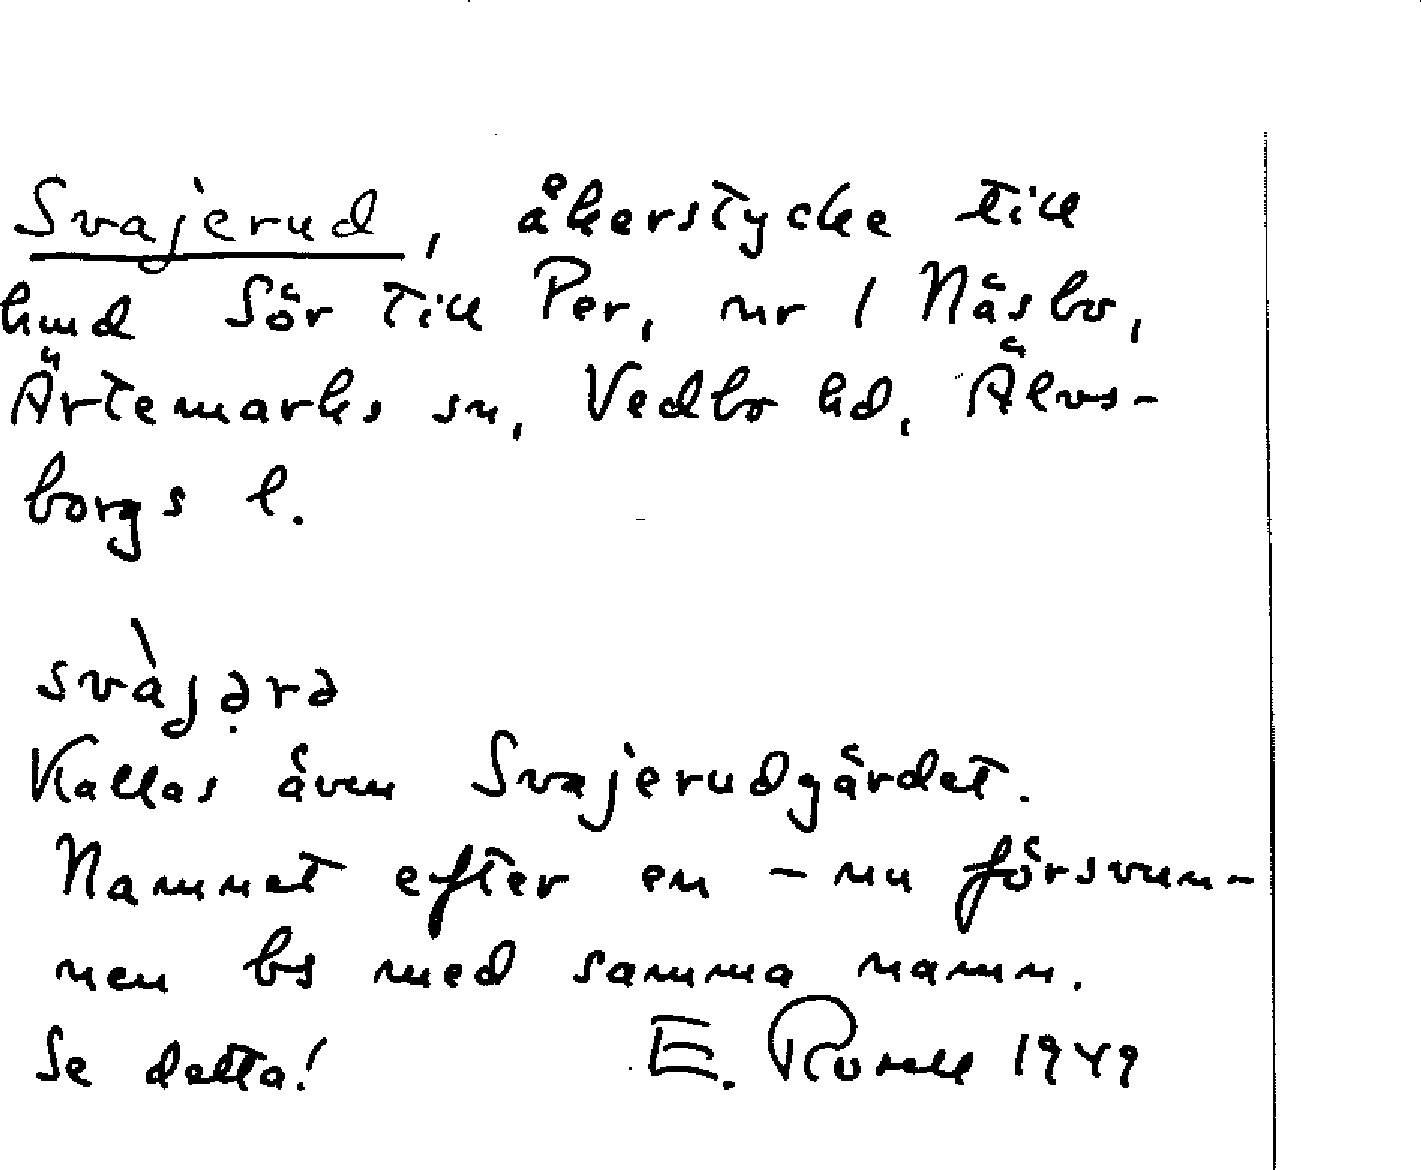 Svajerud, åkerstycke till
hmd Sör till Per, nr 1 Näsbo,
Ärtemarks sn, Vedbo hd, Älvs-
borgs l.
svàjərə
Kallas även Svajerudgärdet.
Namnet efter en - nu försvun-
nen bs med samma namn.
Se detta! E. Rosell 1949